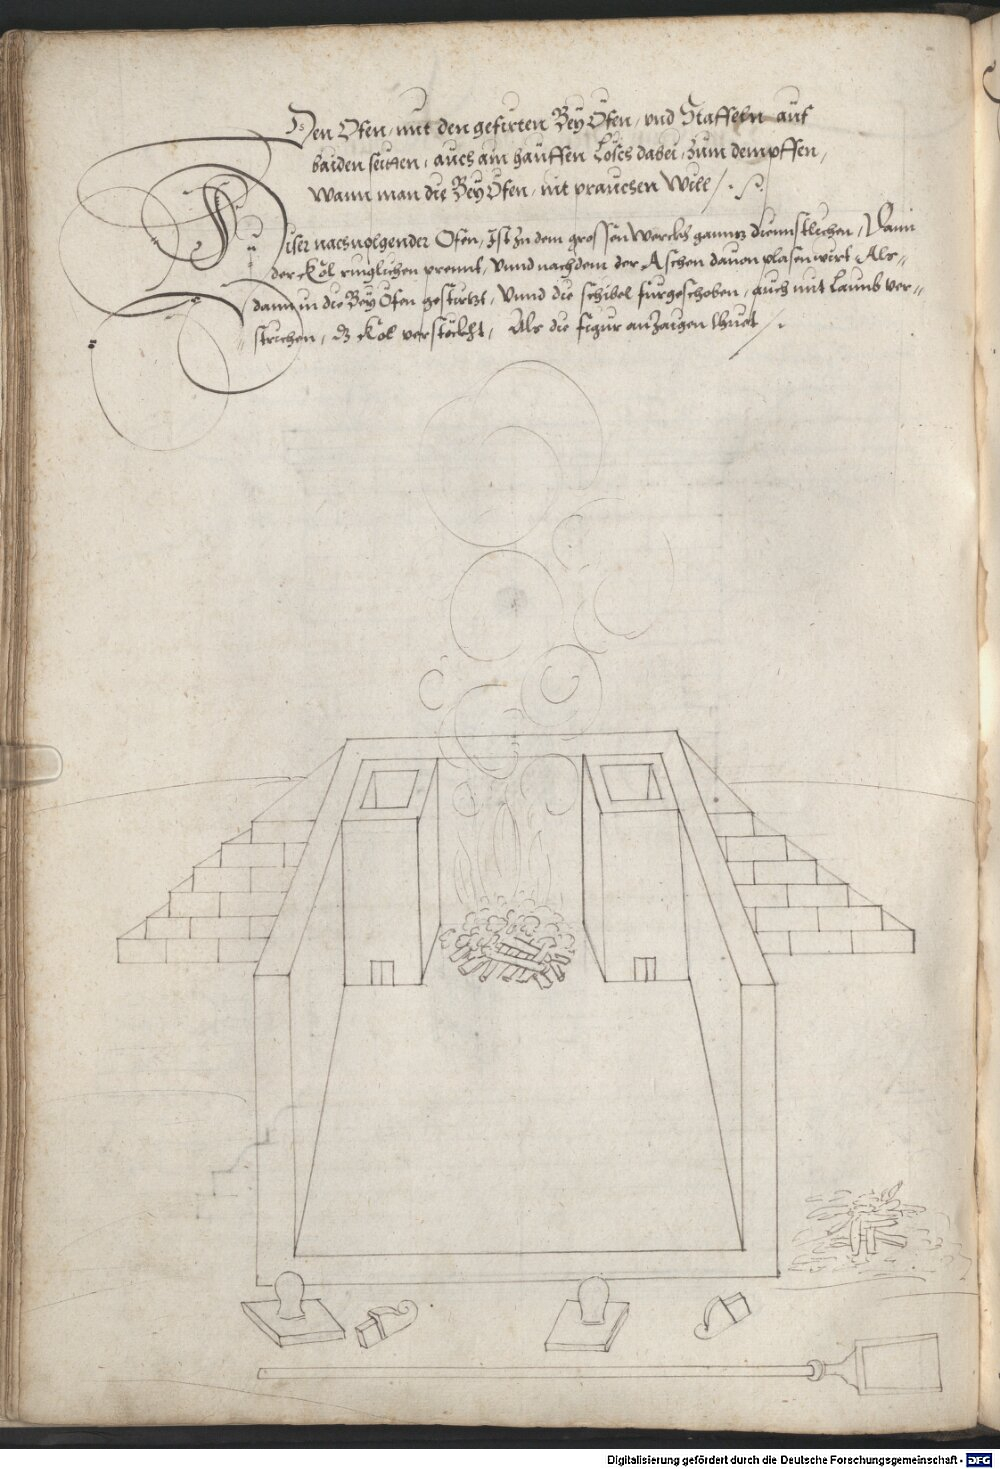 Den Ofen, mit den gefirten Bey Öfen, und Staffeln auf
baiden seitten, auch ain hauffen Lösch dabei, zum dempffen,
wann man die Bey Öfen, nit prauchen will /.
Diser nachuolgender Ofen, Ist zu dem grossen werckh gannz diennstlichen, Dann
der Kol ringlichen prennt, Vnnd nach dem der Aschen dauon plasen wirt Als=
dann in die Bey Öfen gesturtzt, Vnnd die schibel furgeschoben, auch mit Laimb ver=
strichen, dz Kol verstöckht, Als die figur anzaigen thuet /.
Digitalisierung gefördert durch die Deutsche Forschungsgemeinschaft - DFG